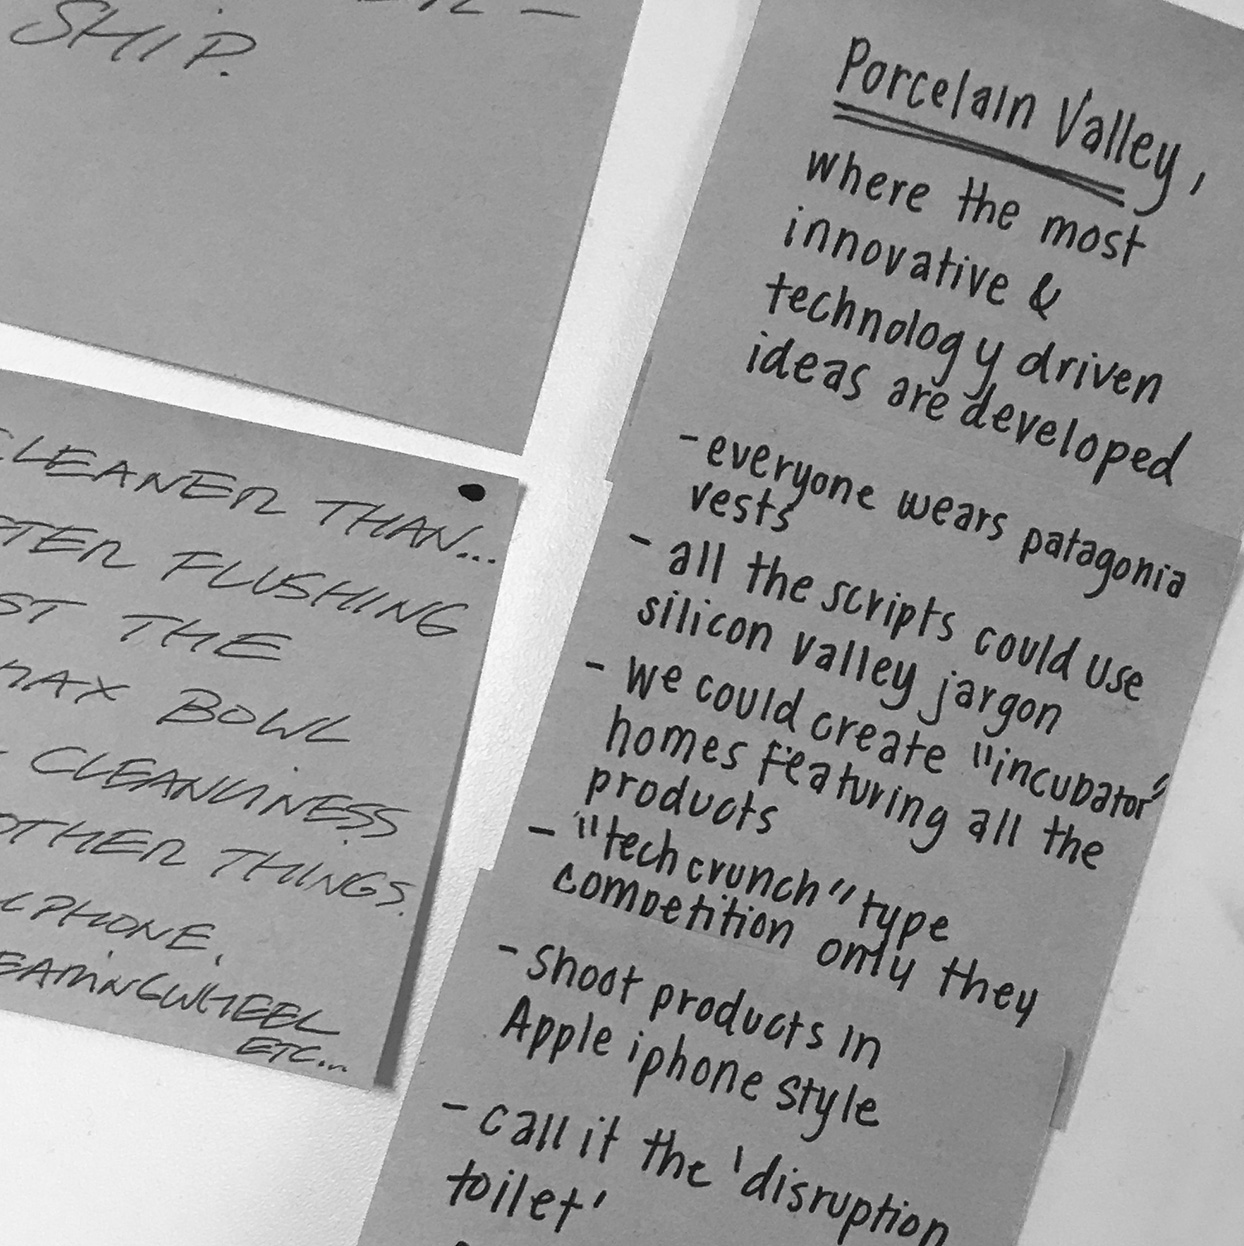 SHIP.
CLEANER THAN...
FLUSHING
THE
BOWL
CLEANLINESS
OTHER THINGS.
PHONE,
WHEEL
ETC...
Porcelain Valley,
where the most
innovative &
technology driven
ideas are developed
- everyone wears patagonia
vests
- all the scripts could use
silicon valley jargon
- we could create "incubator"
homes featuring all the
products
- "tech crunch" type
competition only they
- shoot products in
Apple iphone style
- call it the 'disruption
toilet'